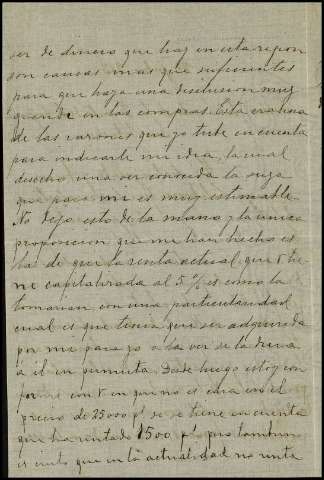 ser de dinero que hay en esta region
son causas mas que suficientes
para que haya una disolucion muy
grande en las compras. Esta era una
de las razones que yo tube en cuenta
para indicarle mi idea, la cual
desecho una ver conocida la suya
que para mi es muy estimable.
No dejo esto de la mano, y la unica
proposicion que me han hecho es
la de que la renta actual, que V. tie-
ne capitalizada al 5 % es como la
tomarian con una particularidad
cual es que tenia que ser adquirida
por mi para yo a la ver se la diera
a el en permuta. Desde luego estoy con
forme con V. en que no es cara en el
precio de 25000 p.s si se tiene en cuenta
que ha rentado 1500 p.s pero tambien
es cierto que en la actualidad no renta